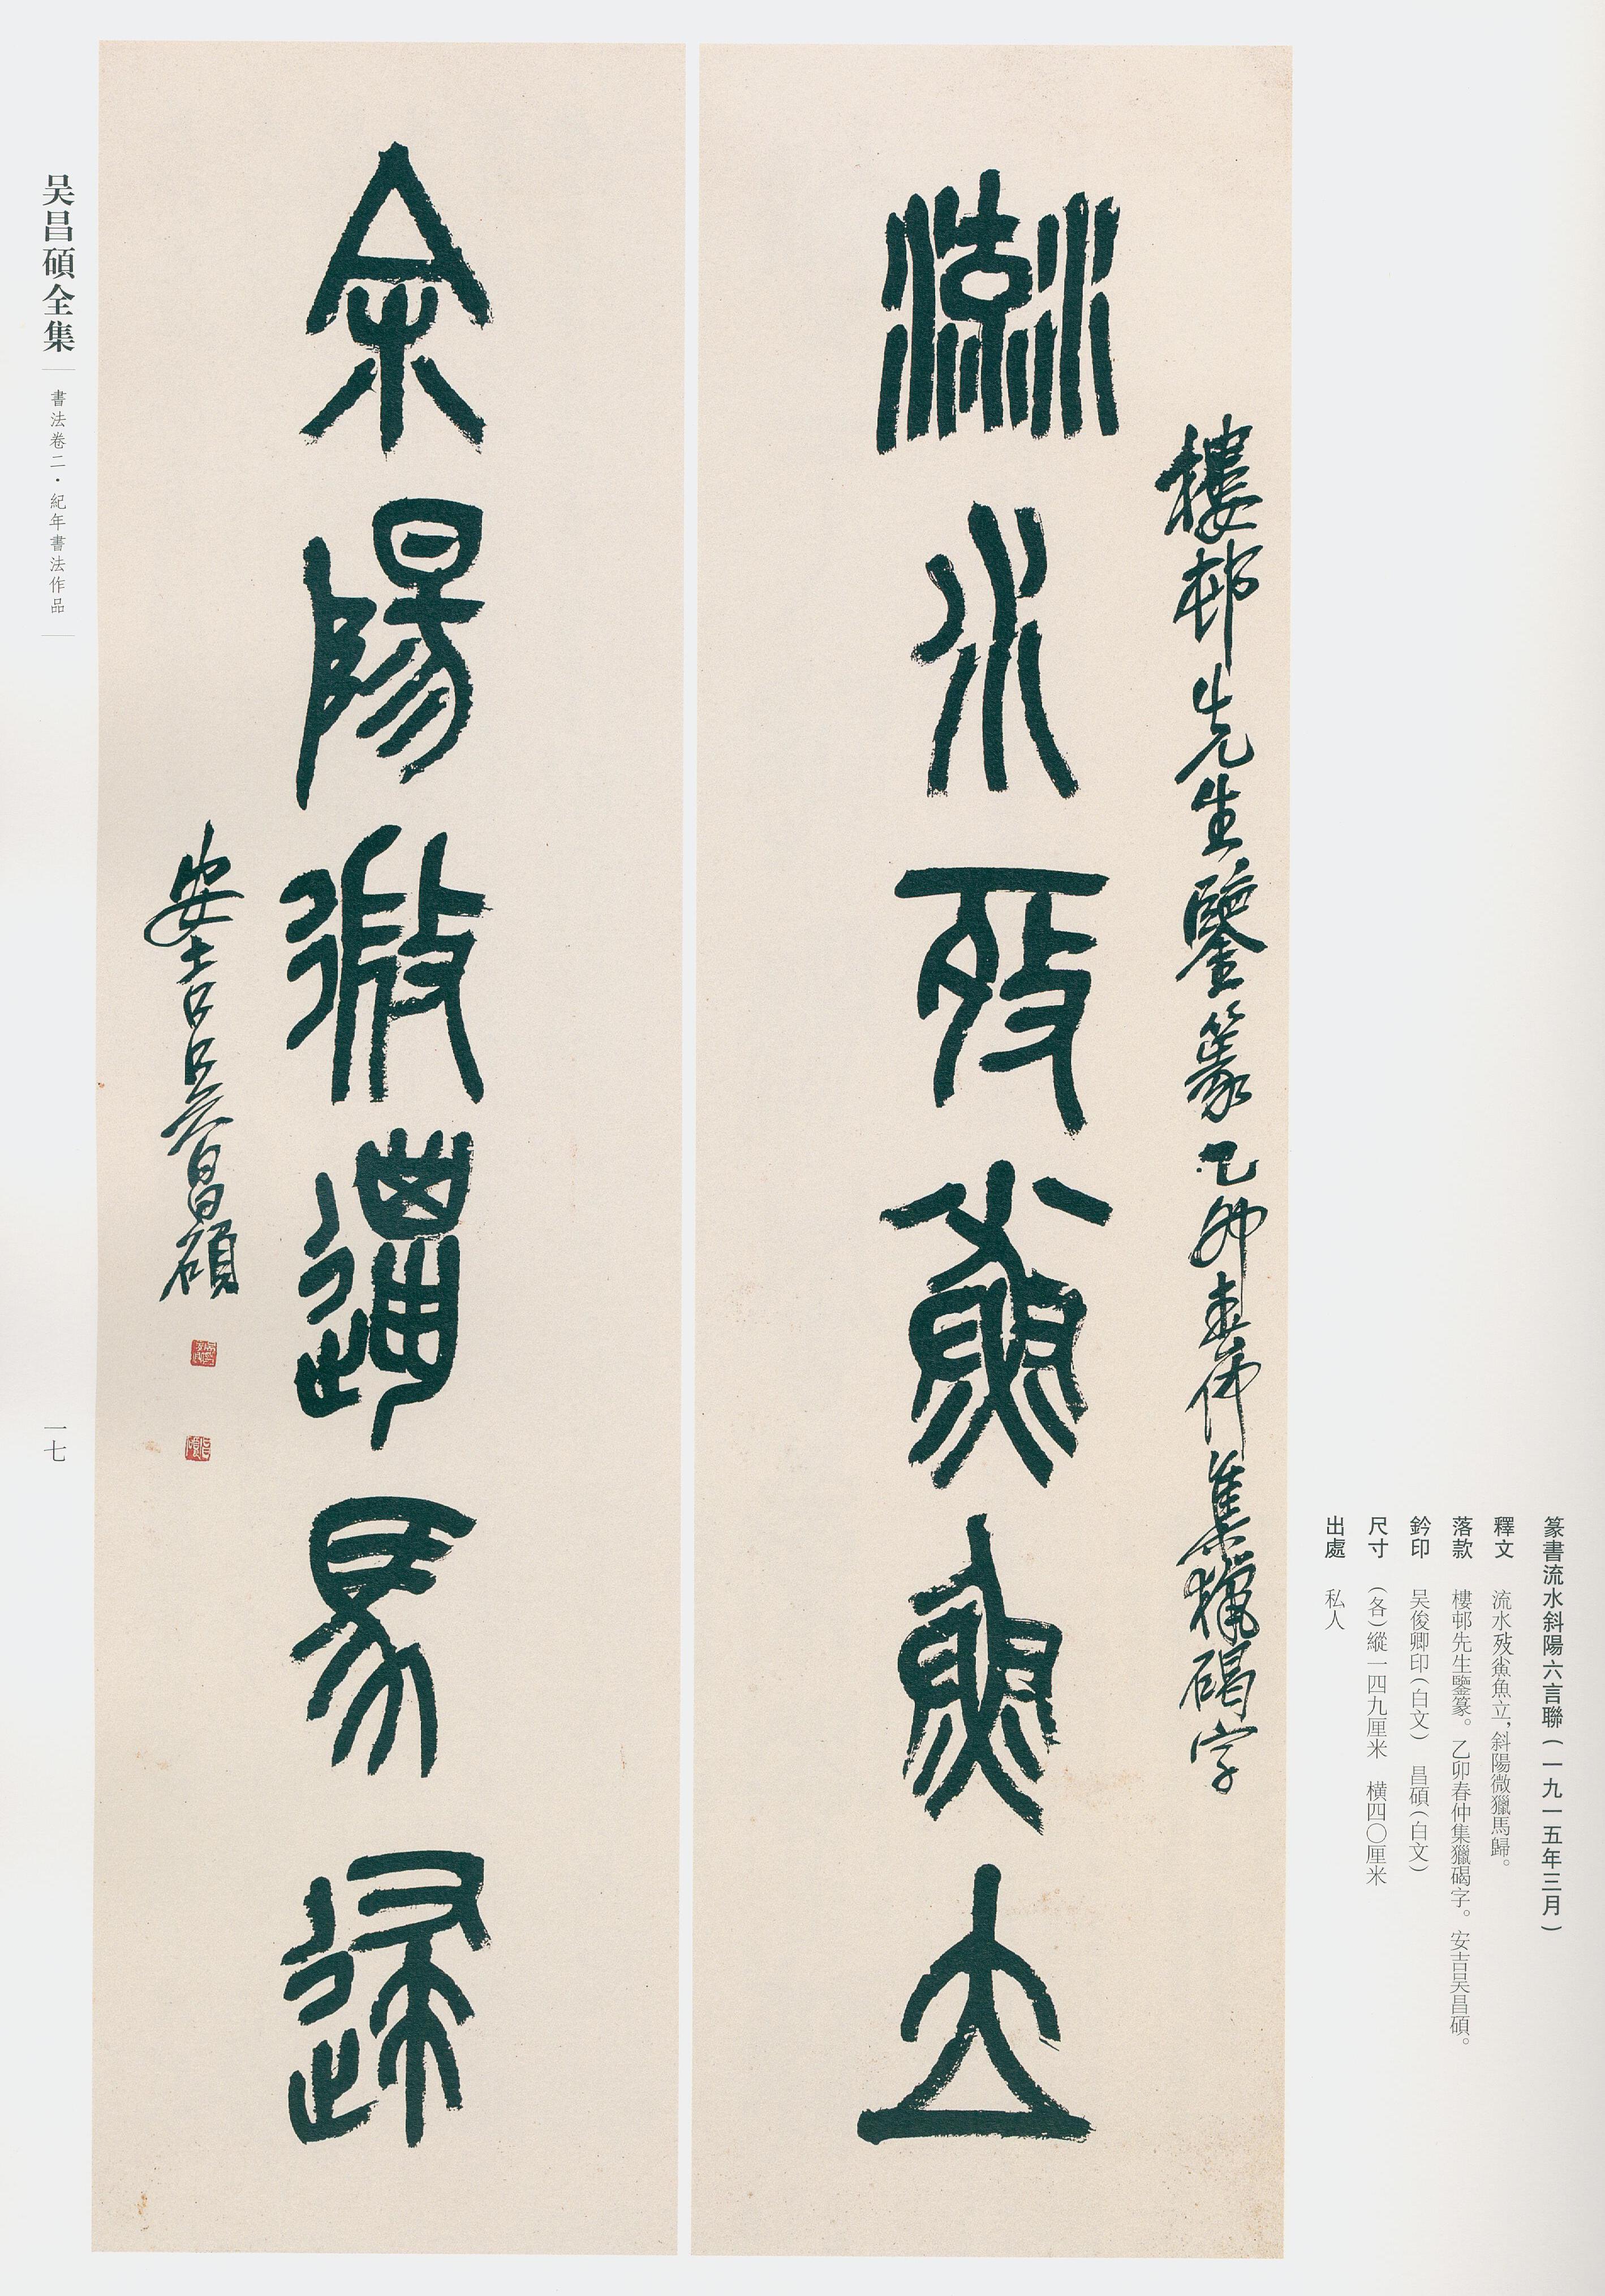 篆書流水斜陽六言聯(一九一五年三月)
釋文 流水𣪊鮝魚立,斜陽微獵馬歸。
落款 樓邨先生鑒篆。乙卯春仲集獵碣字。安吉吴昌碩。
鈐印 吴俊卿印(白文) 昌碩(白文)
尺寸 (各)縱一四九厘米 橫四〇厘米
出處 私人
樓邨先生鑒篆乙卯春仲集獵碣字
流水魚立
斜陽微獵馬歸
安吉吳昌碩
吴昌碩全集
書法卷二·紀年書法作品
一七